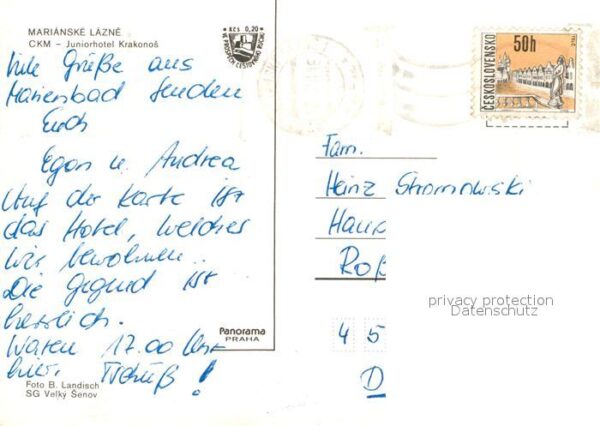 MARIÁNSKÉ LÁZNĚ
CKM – Juniorhotel Krakonoš
Viele Grüße aus
Marienbad senden
Euch
Egon u. Andrea
Auf der Karte ist
das Hotel, welches
wir bewohnen.
Die Gegend ist
herrlich.
Waren 17.00 Uhr
hier. Tschüß!
Foto B. Landisch
SG Velký Šenov
Kčs 0,20
Panorama
PRAHA
ČESKOSLOVENSKO
50h
Telč
Fam.
Heinz Stromowski
Haup
Roß
privacy protection
Datenschutz
4 5
D